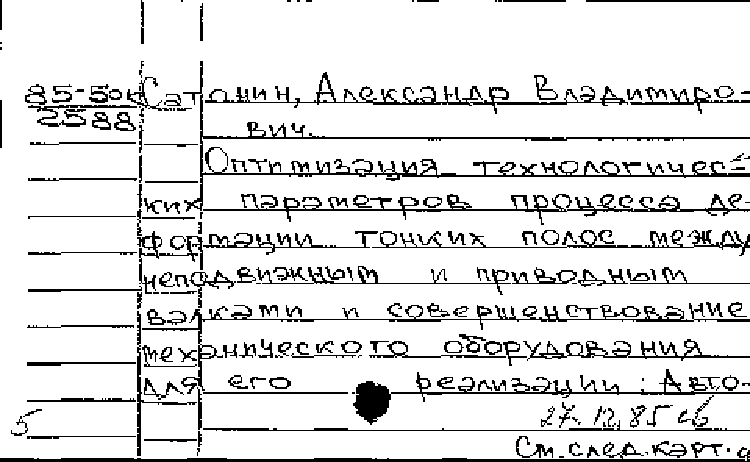 85-5ок Сатанин, Александр Владимиро-
2588 вич.
Оптимизация технологичес-
ких параметров процесса де-
формации тонких полос между
неподвижным и приводным
валками и совершенствование
механического оборудования
для его реализации: Авто-
27.12.85 сб
5
См. след. карт.